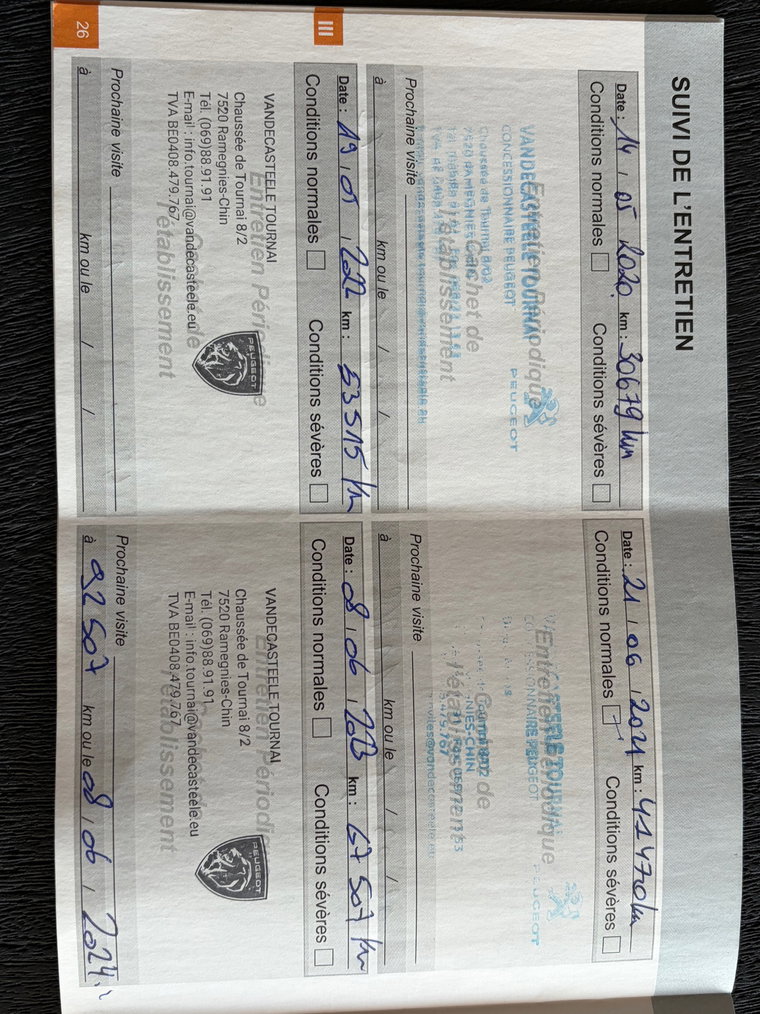 SUIVI DE L'ENTRETIEN
Date : 14 , 05 2020, km : 30679 km
Conditions normales Conditions sévères
Entretien Périodique
Cachet de
l'établissement
VANDECASTEELE TOURNAI
CONCESSIONNAIRE PEUGEOT
Chaussée de Tournai 8/02
7520 RAMEGNIES-CHIN
PEUGEOT
Prochaine visite
à km ou le / /
Date : 21 , 06 , 2021 km : 41470 km
Conditions normales Conditions sévères
Entretien Périodique
Cachet de
l'établissement
PEUGEOT
Prochaine visite
à km ou le / /
III
Date : 19 , 05 , 2022 km : 53515 km
Conditions normales Conditions sévères
Entretien Périodique
Cachet de
l'établissement
VANDECASTEELE TOURNAI
Chaussée de Tournai 8/2
7520 Ramegnies-Chin
Tél. (069)88.91.91
E-mail : info.tournai@vandecasteele.eu
TVA BE0408.479.767
PEUGEOT
Prochaine visite
à km ou le / /
Date : 08 , 06 , 2023 km : 67 507 km
Conditions normales Conditions sévères
Entretien Périodique
Cachet de
l'établissement
VANDECASTEELE TOURNAI
Chaussée de Tournai 8/2
7520 Ramegnies-Chin
Tél. (069)88.91.91
E-mail : info.tournai@vandecasteele.eu
TVA BE0408.479.767
PEUGEOT
Prochaine visite
à 92 507 km ou le 08 , 06 , 2024
26